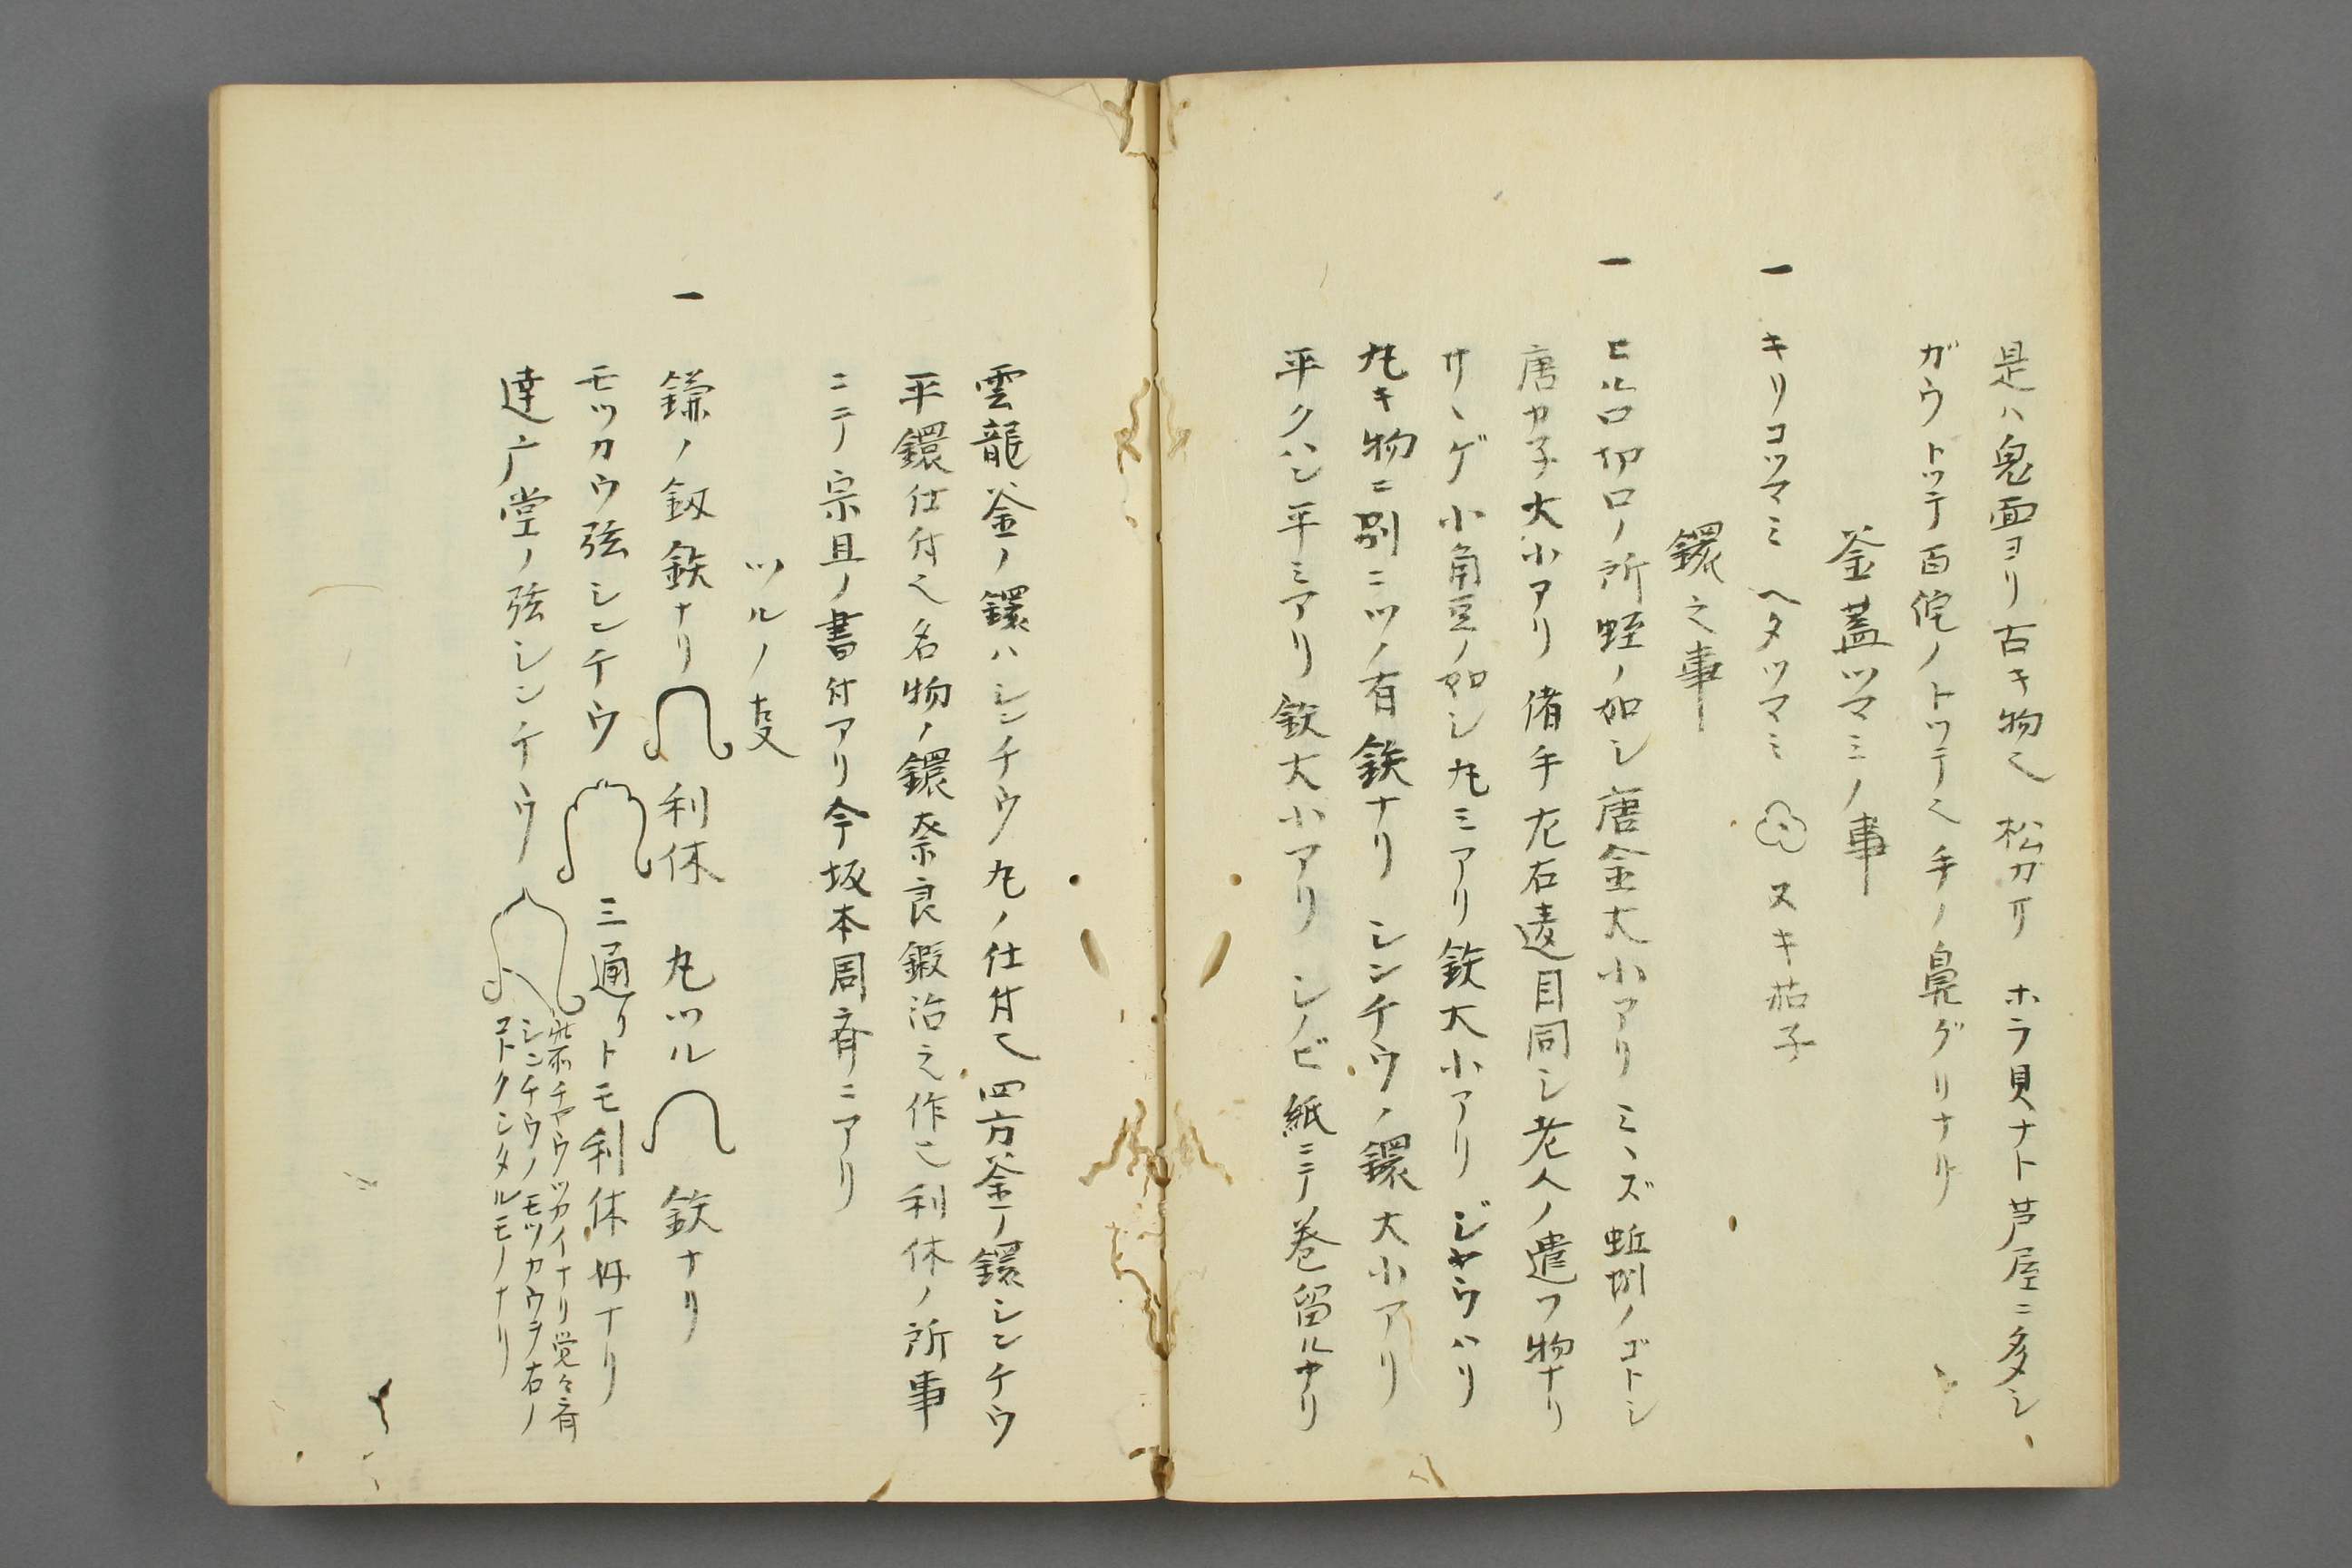 是ハ鬼面ヨリ古キ物也 松カサ ホラ貝ナト芦屋ニ多シ
ガウトツテ百侘ノトツテ也手ノ鼻グリナリ
釜蓋ツマミノ事
一 キリコツマミ ヘタツマミ スキ茄子
鐶之事
一 ヒル口切口ノ所蛭ノ如シ唐金大小アリ ミヽズ蚯蚓ノゴトシ
唐カ子大小アリ 偖手左右違目同シ老人ノ遣フ物ナリ
サヽゲ小角豆ノ如シ丸ミアリ鉄大小アリ ジヤウハリ
丸キ物ニ別ニツノ有鉄ナリ シンチウノ鐶大小アリ
平クハン平ミアリ鉄大小アリ シノビ紙ニテ巻留ルナリ
雲龍釜ノ鐶ハシンチウ丸ノ仕付也四方釜ノ鐶シンチウ
平鐶仕付也名物ノ鐶奈良鍛冶之作也利休ノ所事
ニテ宗旦ノ書付アリ今坂本周斎ニアリ
ツルノ支
一 鎌ノ釼鉄ナリ 利休 丸ツル 鉄ナリ
モツカウ弦シンチウ 三通リトモ利休好ナリ
達广堂ノ弦シンチウ
チヤウツカイナリ覚々斎
シンチウノモツカウヲ右ノ
コトクシタルモノナリ